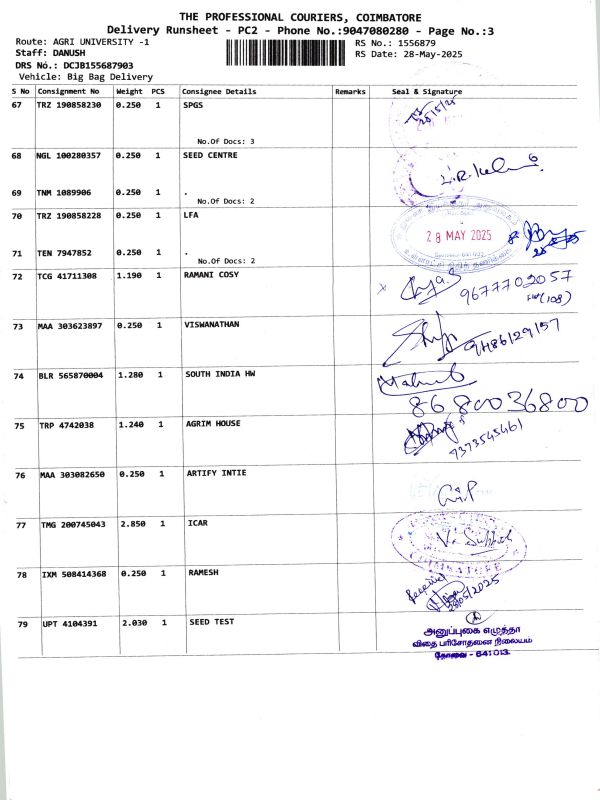 THE PROFESSIONAL COURIERS, COIMBATORE
Delivery Runsheet - PC2 - Phone No.:9047080280 - Page No.:3
Route: AGRI UNIVERSITY -1 RS No.: 1556879
Staff: DANUSH RS Date: 28-May-2025
DRS No.: DCJB155687903
Vehicle: Big Bag Delivery
S No Consignment No Weight PCS Consignee Details Remarks Seal & Signature
67 TRZ 190858230 0.250 1 SPGS
28/5/25
No.Of Docs: 3
68 NGL 100280357 0.250 1 SEED CENTRE
69 TNM 1089906 0.250 1 .
No.Of Docs: 2
70 TRZ 190858228 0.250 1 LFA
28 MAY 2025
71 TEN 7947852 0.250 1 .
No.Of Docs: 2
72 TCG 41711308 1.190 1 RAMANI COSY
9677702057
(108)
73 MAA 303623897 0.250 1 VISWANATHAN
74 BLR 565870004 1.280 1 SOUTH INDIA HW
8680036800
75 TRP 4742038 1.240 1 AGRIM HOUSE
7373545461
76 MAA 303082650 0.250 1 ARTIFY INTIE
77 TMG 200745043 2.850 1 ICAR
COIMBATORE
78 IXM 508414368 0.250 1 RAMESH
Received
28/05/2025
79 UPT 4104391 2.030 1 SEED TEST
அனுப்புகை எழுத்தர்
விதை பரிசோதனை நிலையம்
கோவை - 641 013.